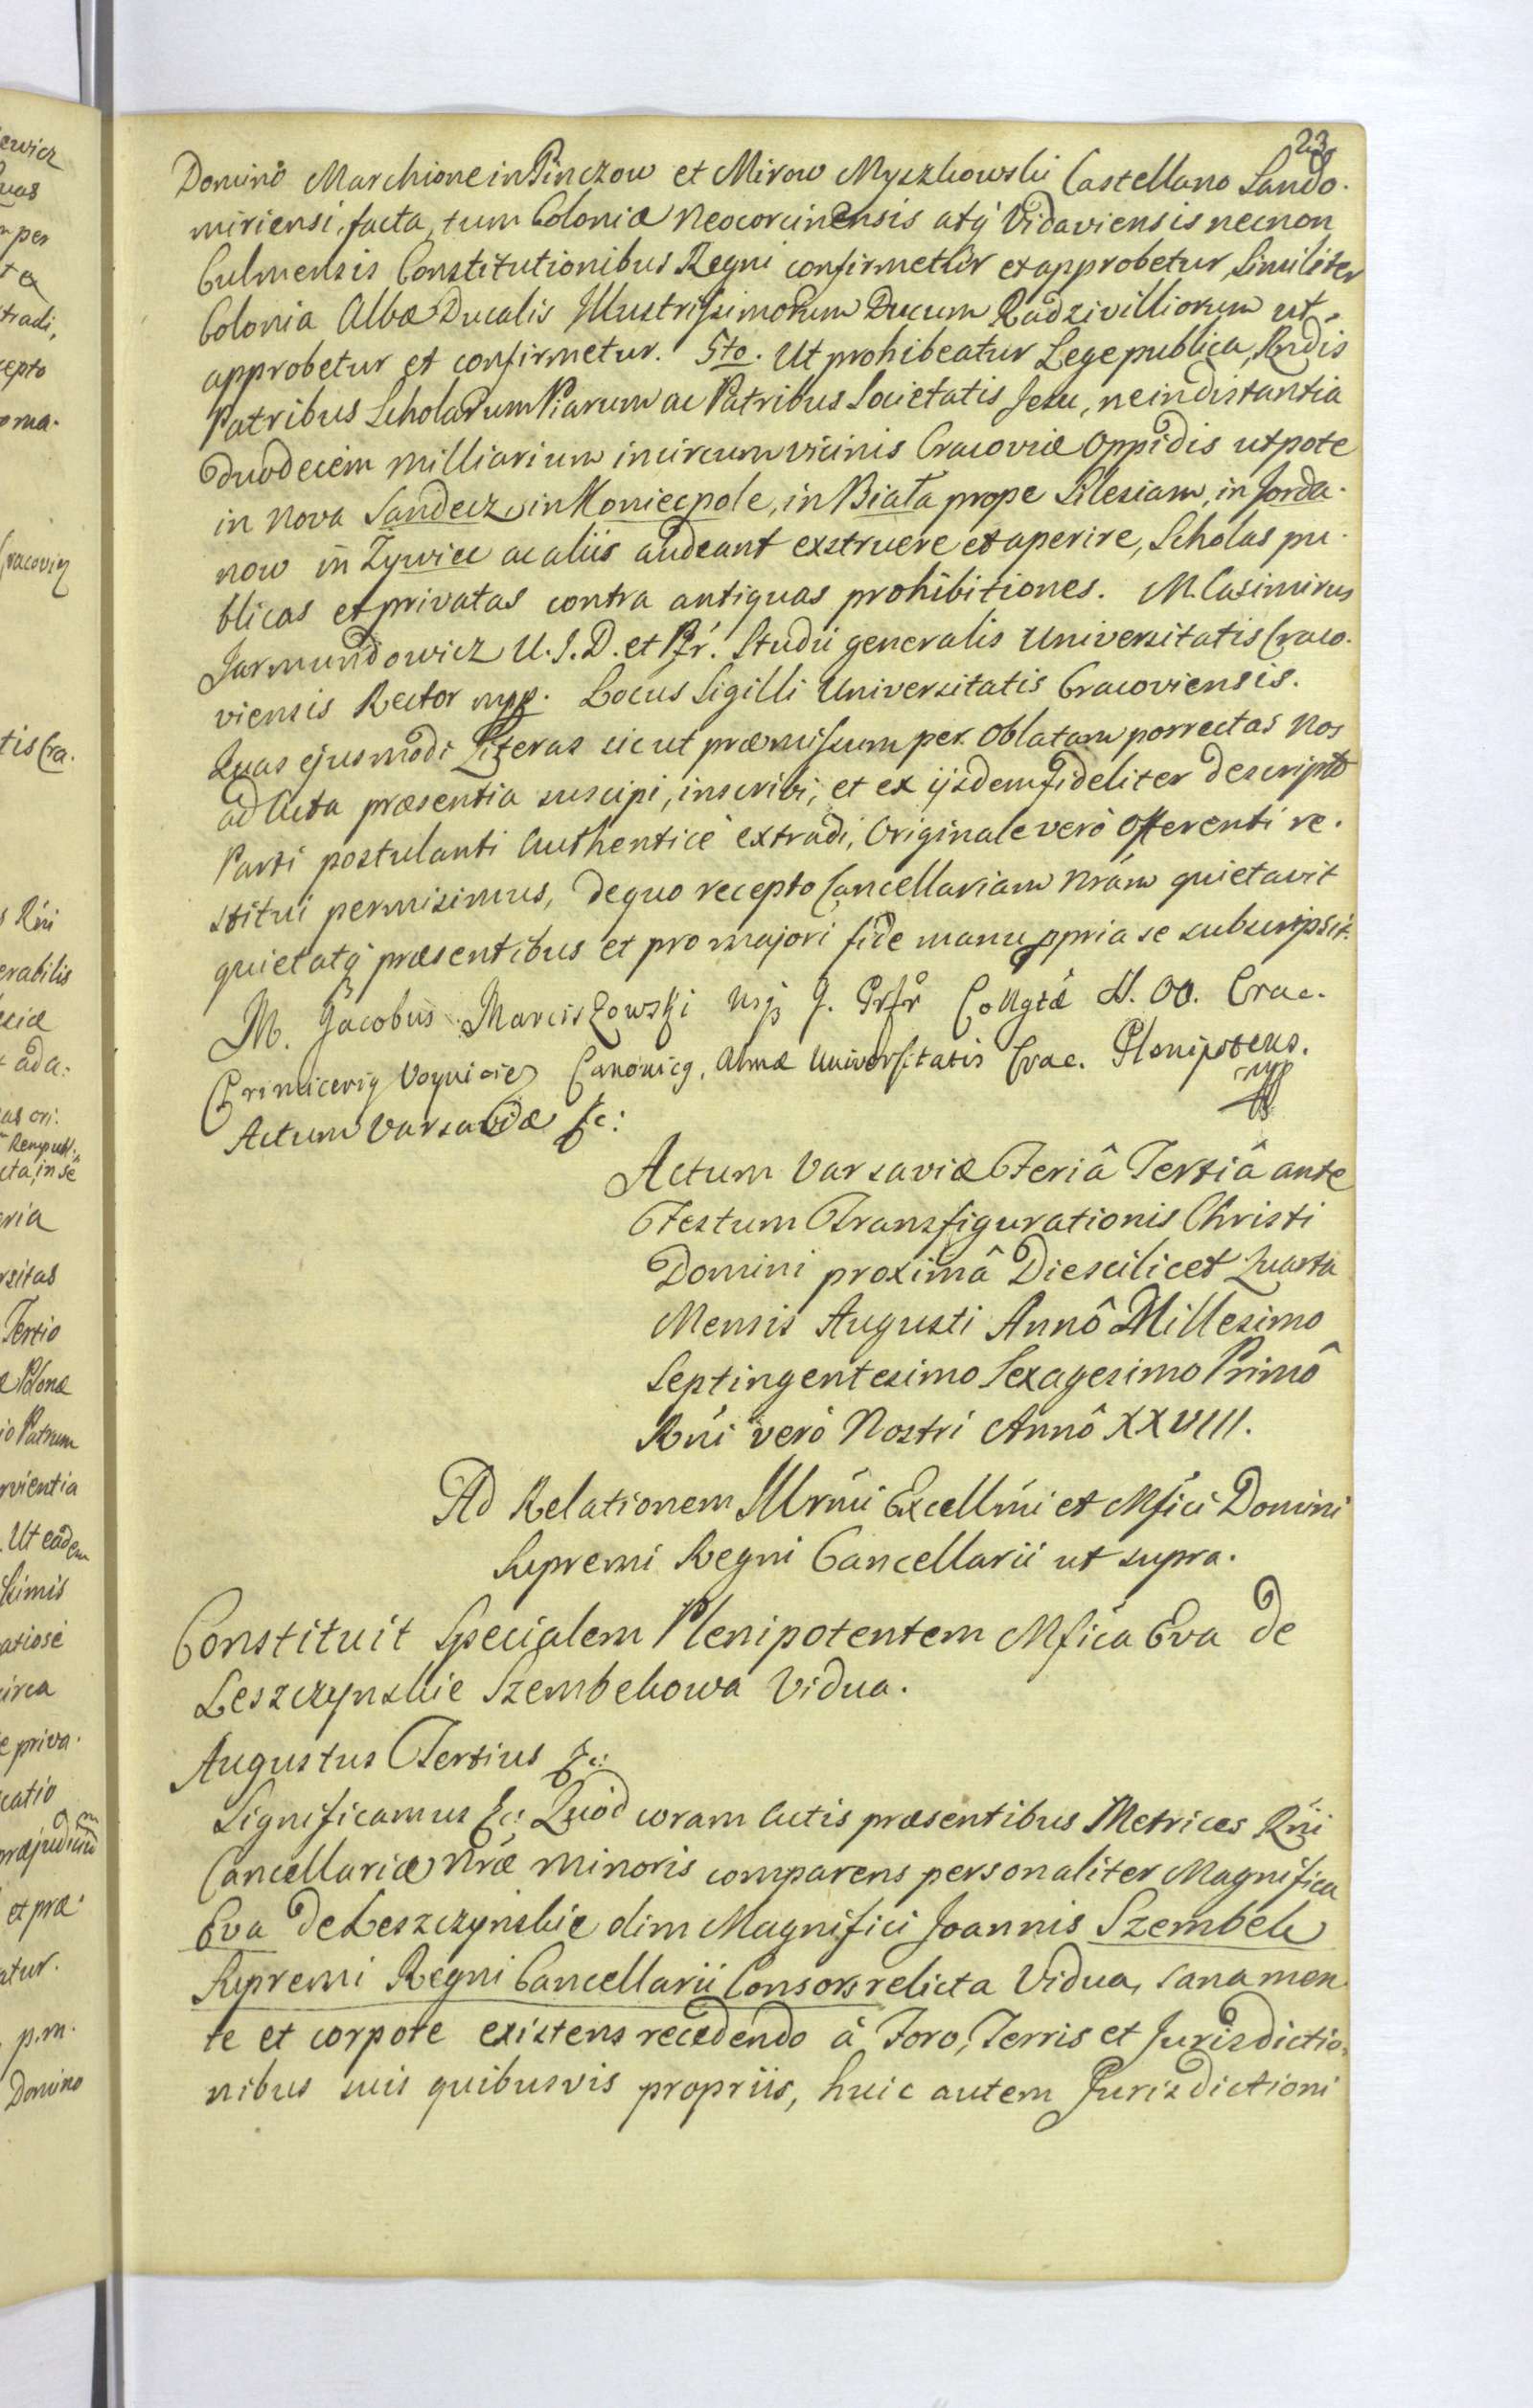 23
Domino Marchione in Pinczow et Mirow Myszkowski Castellano Sando-
miriensi, facta, tum Coloniæ Neocorcinensis atq́ Vidaviensis necnon
Culmensis Constitutionibus Regni confirmetur et approbetur, Similiter
Colonia Albæ Ducalis Illustrissimorum Ducum Radzivilliorum ut
approbetur et confirmetur. 5to. Ut prohibeatur Lege publica, Rndis
Patribus Scholarum Piarum ac Patribus Societatis Jesu, ne in distantia
duodecim milliarium in circumvicinis Cracoviæ Oppidis utpote
in Nova Sandecz, in Koniecpole, in Biała prope Silesiam, in Jorda-
now in Zywiec ac aliis audeant exstruere et aperire, Scholas pu-
blicas et privatas contra antiquas prohibitiones. M. Casimirus
Jarmundowicz U. J. D. et Pfr. Studii generalis Universitatis Craco-
viensis Rector mpp. Locus Sigilli Universitatis Cracoviensis.
Quas ejusmodi Literas sicut præmissum per Oblatam porrectas Nos
ad Acta præsentia suscipi, inscribi, et ex ijsdem fideliter descripto
Parti postulanti Authenticè extradi, Originale verò Offerenti re-
stitui permisimus, de quo recepto Cancellariam Nrám quietavit
quietatq́ præsentibus et pro majori fide manu ppria se subscripsit.
M. Jacobus Marciszowski Collgtæ OO. Crac.
Canonicq, Almæ Universitatis Crac. Plenipotens.
mpp
Actum Varsaviæ &c:
Actum Varsaviæ Feriâ Tertiâ ante
Festum Transfigurationis Christi
Domini proximâ Die scilicet Quarta
Mensis Augusti Annô Millesimo
Septingentesimo Sexagesimo Primô
Rńi verò Nostri Annô XXVIII.
Ad Relationem Illrmi Excellmi et Mfici Domini
Supremi Regni Cancellarii ut supra.
Constituit Specialem Plenipotentem Mfica Eva de
Leszczynskie Szembekowa Vidua.
Augustus Tertius &c:
Significamus &c: Quòd coram Actis præsentibus Metrices Rńi
Cancellariæ Nræ Minoris comparens personaliter Magnifica
Eva de Leszczynskie olim Magnifici Joannis Szembek
Supremi Regni Cancellarii Consors relicta Vidua, sana men-
te et corpore existens recedendo à Foro, Terris et Jurisdictio-
nibus suis quibusvis propriis, huic autem Jurisdictioni